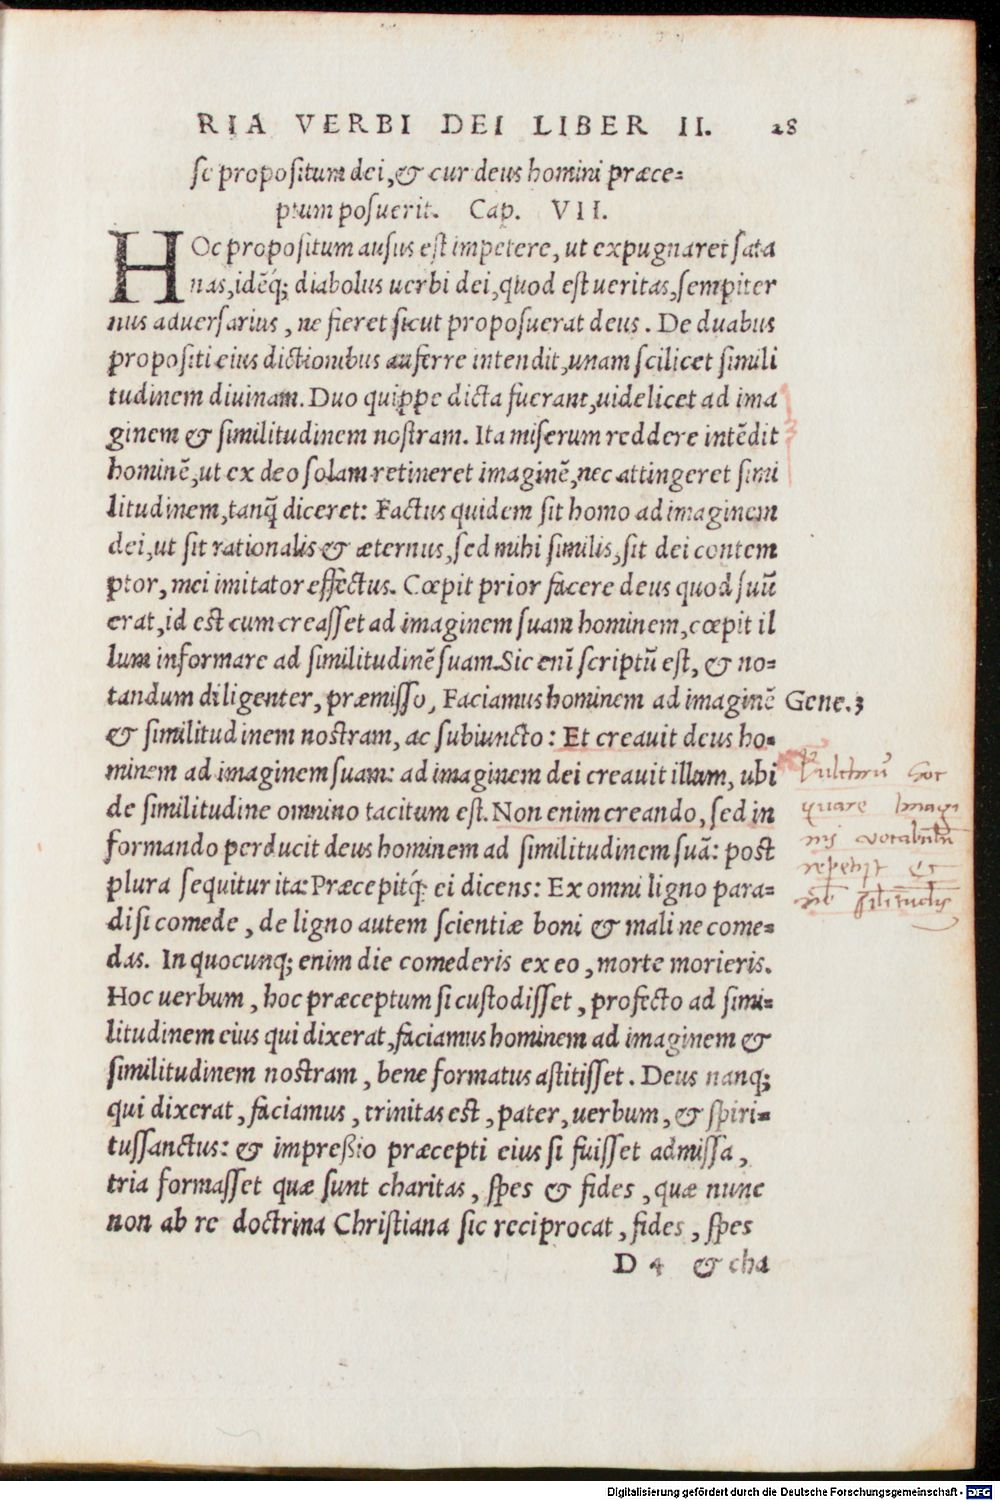 RIA VERBI DEI LIBER II. 28
se propositum dei, & cur deus homini præce=
ptum posuerit. Cap. VII.
HOc propositum ausus est impetere, ut expugnaret sata
nas, idēq́; diabolus uerbi dei, quod est ueritas, sempiter
nus aduersarius, ne fieret sicut proposuerat deus. De duabus
propositi eius dictionibus auferre intendit, unam scilicet simili
tudinem diuinam. Duo quippe dicta fuerant, uidelicet ad ima
ginem & similitudinem nostram. Ita miserum reddere intēdit
hominē, ut ex deo solam retineret imaginē, nec attingeret simi
litudinem, tanq̄ diceret: Factus quidem sit homo ad imaginem
dei, ut sit rationalis & æternus, sed mihi similis, sit dei contem
ptor, mei imitator effectus. Cœpit prior facere deus quod suū
erat, id est cum creasset ad imaginem suam hominem, cœpit il
lum informare ad similitudinē suam. Sic enī scriptū est, & no=
tandum diligenter, præmisso, Faciamus hominem ad imaginē
Gene. 3
& similitudinem nostram, ac subiuncto: Et creauit deus ho=
minem ad imaginem suam: ad imaginem dei creauit illam, ubi
de similitudine omnino tacitum est. Non enim creando, sed in
formando perducit deus hominem ad similitudinem suā: post
plura sequitur ita: Præcepitq́; ei dicens: Ex omni ligno para=
disi comede, de ligno autem scientiæ boni & mali ne come=
das. In quocunq; enim die comederis ex eo, morte morieris.
Hoc uerbum, hoc præceptum si custodisset, profecto ad simi=
litudinem eius qui dixerat, faciamus hominem ad imaginem &
similitudinem nostram, bene formatus astitisset. Deus nanq;
qui dixerat, faciamus, trinitas est, pater, uerbum, & spiri=
tussanctus: & impreßio præcepti eius si fuisset admissa,
tria formasset quæ sunt charitas, spes & fides, quæ nunc
non ab re doctrina Christiana sic reciprocat, fides, spes
D 4 & cha
quare Imagi
nis vocabulū
repetijt et
Digitalisierung gefördert durch die Deutsche Forschungsgemeinschaft - DFG